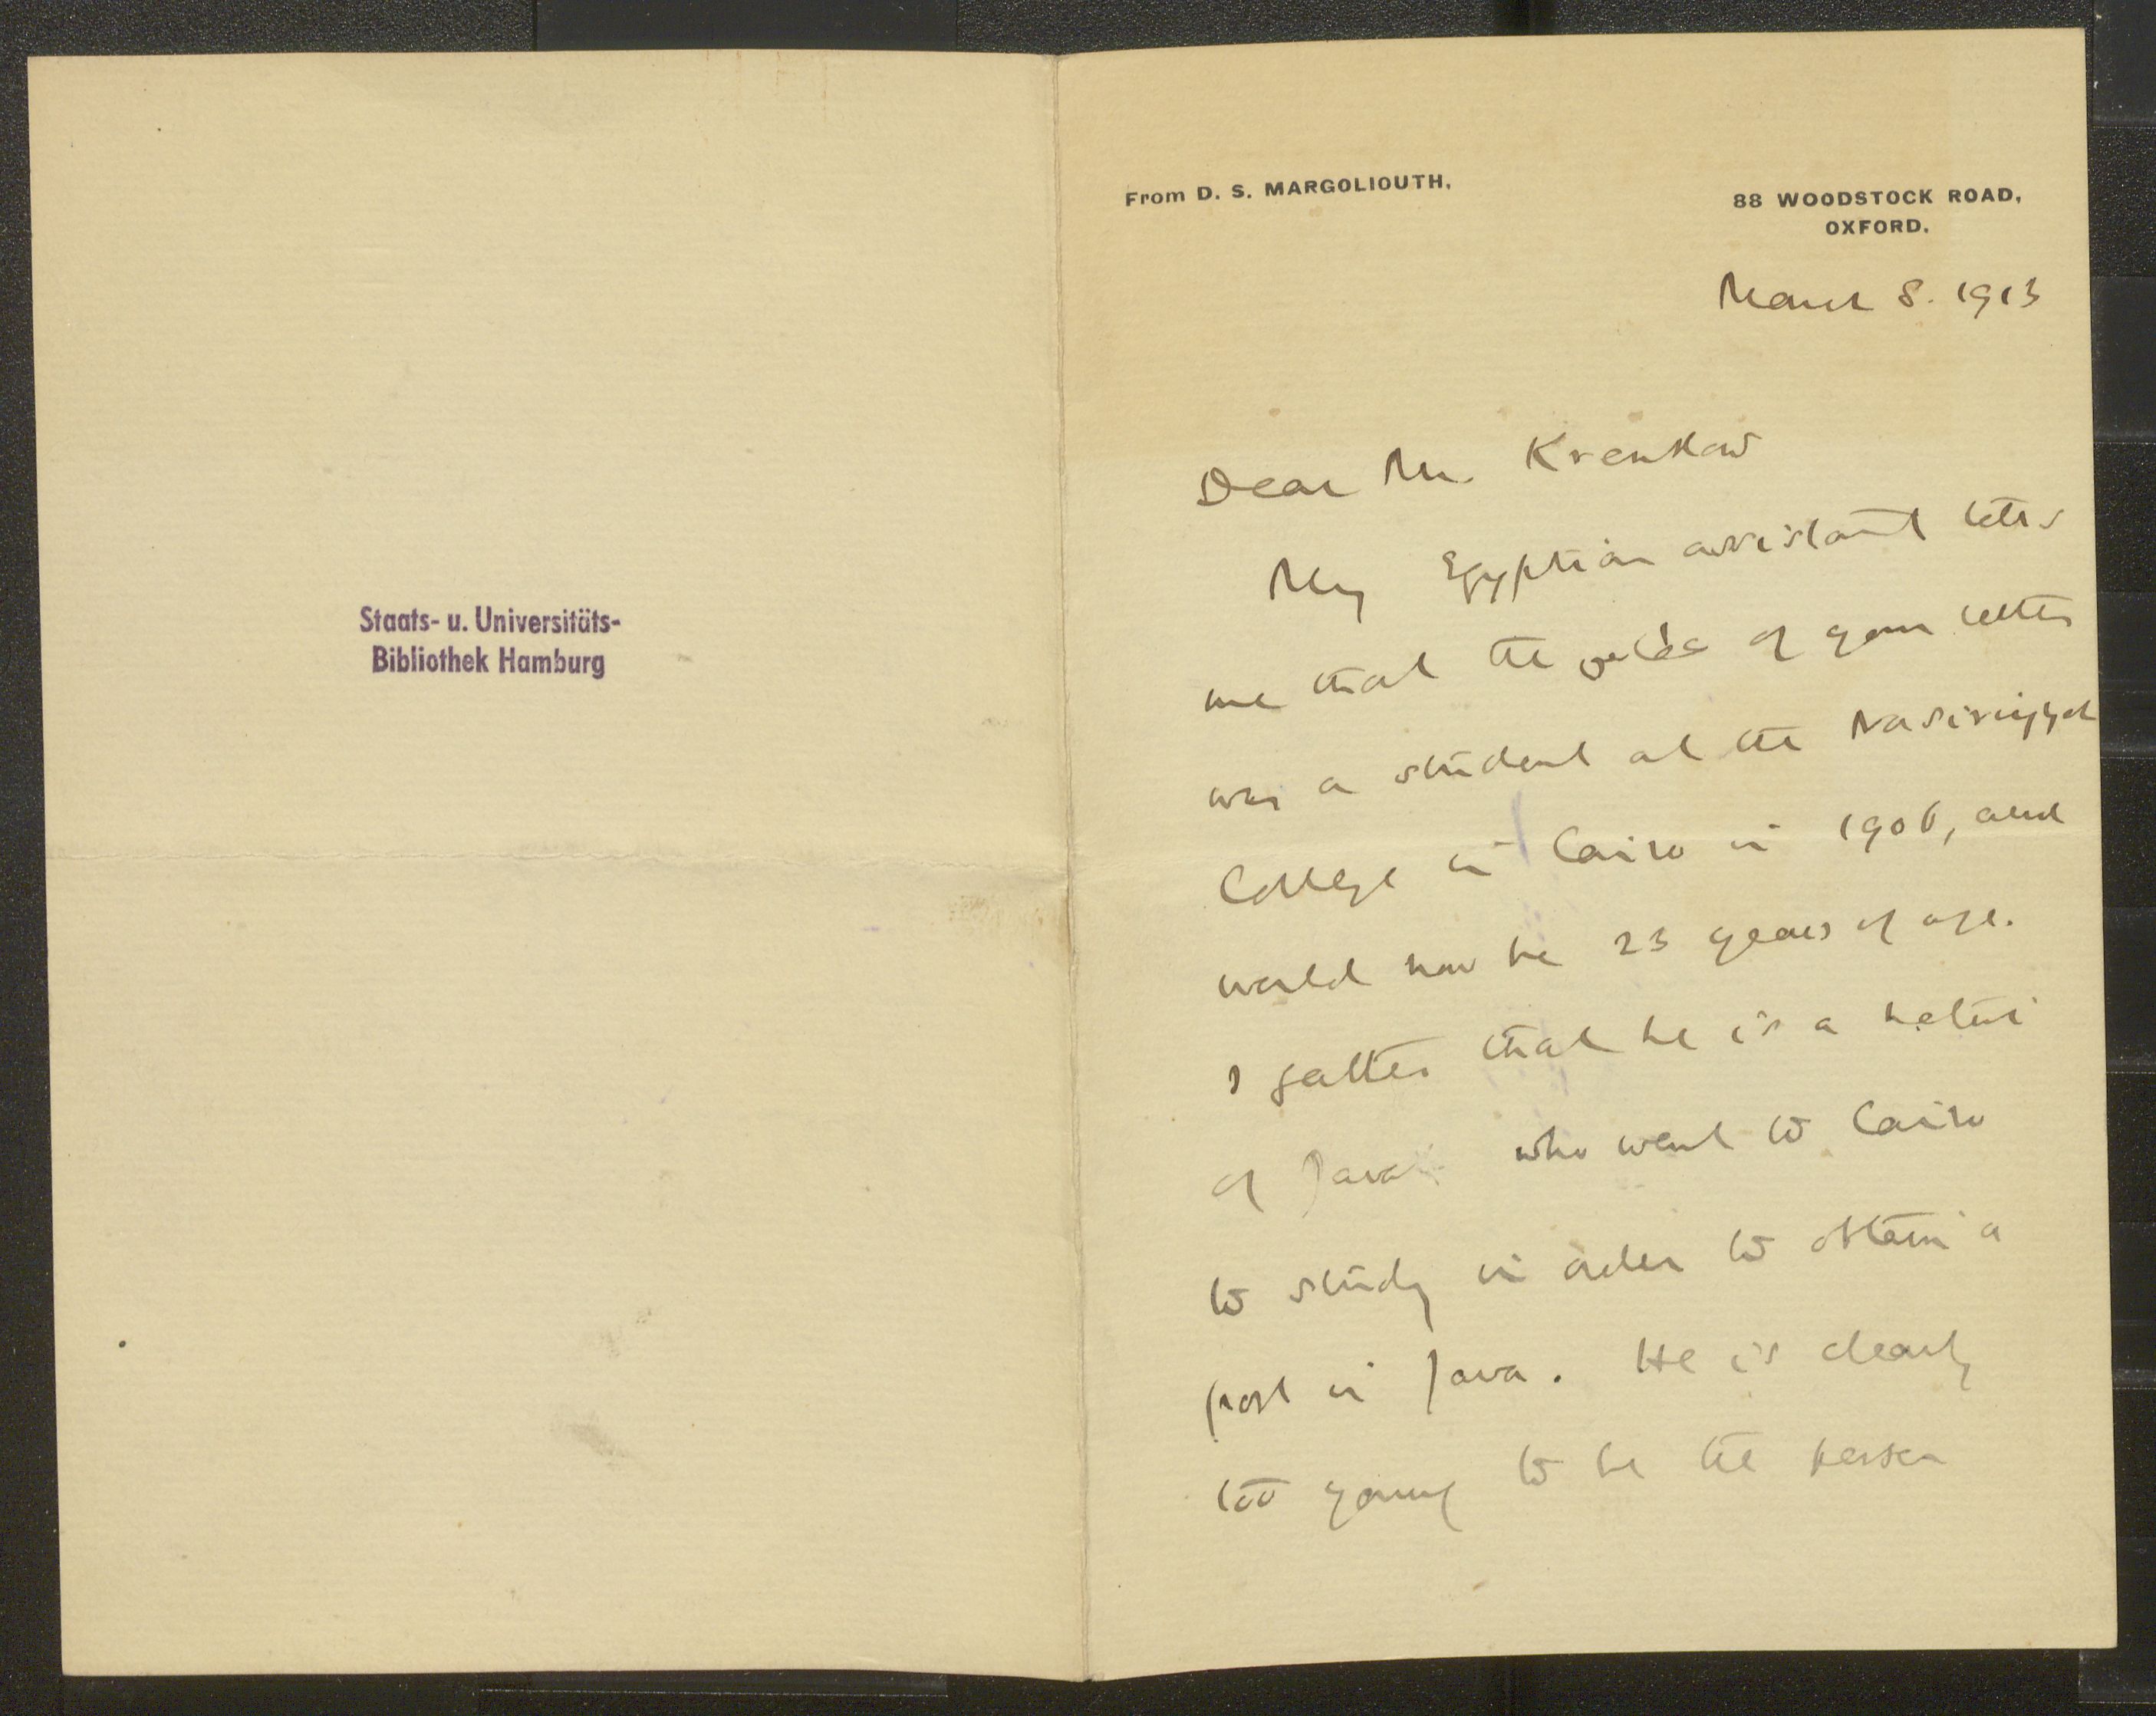 Staats- u. Universitäts-
Bibliothek Hamburg
From D. S. MARGOLIOUTH,
88 WOODSTOCK ROAD,
OXFORD.
March 8. 1913
Dear Mr. Krenkow
My Egyptian assistant tells
me that the of your letter
was a student at the Nasiriyyah
College in Cairo in 1906, and
would now be 23 years of age.
I gather that he is a native
of Java who went to Cairo
to study in order to obtain a
post in Java. He is clearly
too young to be the person